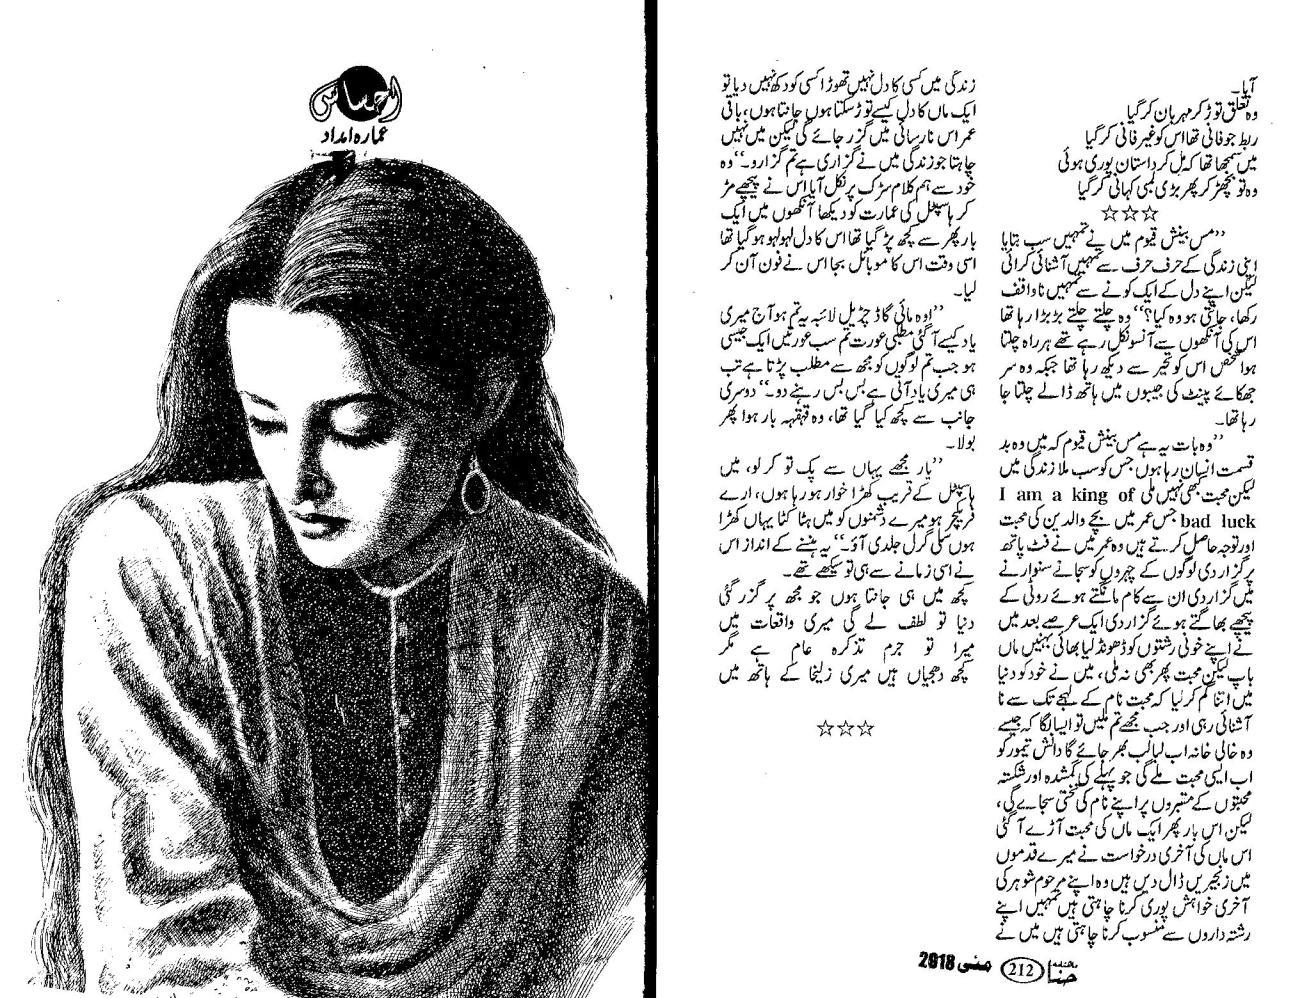 آیا۔
وہ تعلق توڑ کر مہربان کر گیا
ربط جو فانی تھا اس کو غیر فانی کر گیا
میں سمجھا تھا کہ مل کر داستان پوری ہوئی
وہ تو بچھڑ کر پھر بڑی لمبی کہانی کر گیا
☆☆☆
’’مس بینش قیوم میں نے تمہیں سب بتایا
اپنی زندگی کے حرف حرف سے تمہیں آشنائی کرائی
لیکن اپنے دل کے ایک کونے سے تمہیں ناواقف
رکھا، جانتی ہو وہ کیا؟‘‘ وہ چلتے چلتے بڑبڑا رہا تھا
اس کی آنکھوں سے آنسو نکل رہے تھے ہر راہ چلتا
ہوا شخص اس کو تحیر سے دیکھ رہا تھا جبکہ وہ سر
جھکائے پینٹ کی جیبوں میں ہاتھ ڈالے چلتا جا
رہا تھا۔
’’وہ بات یہ ہے مس بینش قیوم کہ میں وہ بد
قسمت انسان رہا ہوں جس کو سب ملا زندگی میں
لیکن محبت کبھی نہیں ملی I am a king of
bad luck جس عمر میں بچے والدین کی محبت
اور توجہ حاصل کرتے ہیں وہ عمر میں نے فٹ پاتھ
پر گزار دی لوگوں کے چہروں کو سجانے سنوارنے
میں گزار دی ان سے کام مانگتے ہوئے روٹی کے
پیچھے بھاگتے ہوئے گزار دی ایک عرصے بعد میں
نے اپنے خونی رشتوں کو ڈھونڈ لیا بھائی بہنیں ماں
باپ لیکن محبت پھر بھی نہ ملی، میں نے خود کو دنیا
میں اتنا گم کر لیا کہ محبت نام کے لہجے تک سے نا
آشنائی رہی اور جب مجھے تم ملیں تو ایسا لگا کہ جیسے
وہ خالی خانہ اب لبالب بھر جائے گا دانش تیمور کو
اب ایسی محبت ملے گی جو پہلے کی گمشدہ اور شکستہ
محبتوں کے مقبروں پر اپنے نام کی تختی سجائے گی،
لیکن اس بار پھر ایک ماں کی محبت آڑے آ گئی
اس ماں کی آخری درخواست نے میرے قدموں
میں زنجیریں ڈال دیں ہیں وہ اپنے مرحوم شوہر کی
آخری خواہش پوری کرنا چاہتی ہیں تمہیں اپنے
رشتہ داروں سے منسوب کرنا چاہتی ہیں میں نے
زندگی میں کسی کا دل نہیں تھوڑا کسی کو دکھ نہیں دیا تو
ایک ماں کا دل کیسے توڑ سکتا ہوں جانتا ہوں، باقی
عمر اس نارسائی میں گزر جائے گی لیکن میں نہیں
چاہتا جو زندگی میں نے گزاری ہے تم گزارو۔‘‘ وہ
خود سے ہم کلام سڑک پر نکل آیا اس نے پیچھے مڑ
کر ہاسپٹل کی عمارت کو دیکھا آنکھوں میں ایک
بار پھر سے کچھ پڑ گیا تھا اس کا دل لہولہو ہو گیا تھا
اسی وقت اس کا موبائل بجا اس نے فون آن کر
لیا۔
’’اوہ مائی گاڈ چڑیل لائبہ یہ تم ہو آج میری
یاد کیسے آ گئی مطلبی عورت تم سب عورتیں ایک جیسی
ہو جب تم لوگوں کو مجھ سے مطلب پڑتا ہے تب
ہی میری یاد آتی ہے بس بس رہنے دو۔‘‘ دوسری
جانب سے کچھ کہا گیا تھا، وہ قہقہہ بار ہوا پھر
بولا۔
’’یار مجھے یہاں سے پک تو کر لو، میں
ہاسپٹل کے قریب کھڑا خوار ہو رہا ہوں، ارے
فریکچر ہو میرے دشمنوں کو میں ہٹا کٹا یہاں کھڑا
ہوں سلی گرل جلدی آؤ۔‘‘ یہ ہنسنے کے انداز اس
نے اسی زمانے سے ہی تو سیکھے تھے۔
کچھ میں ہی جانتا ہوں جو مجھ پر گزر گئی
دنیا تو لطف لے گی میری واقعات میں
میرا تو جرم تذکرہ عام ہے مگر
کچھ دھجیاں ہیں میری زلیخا کے ہاتھ میں
☆☆☆
حنا 212 مئی 2018
احساس
عمارہ امداد